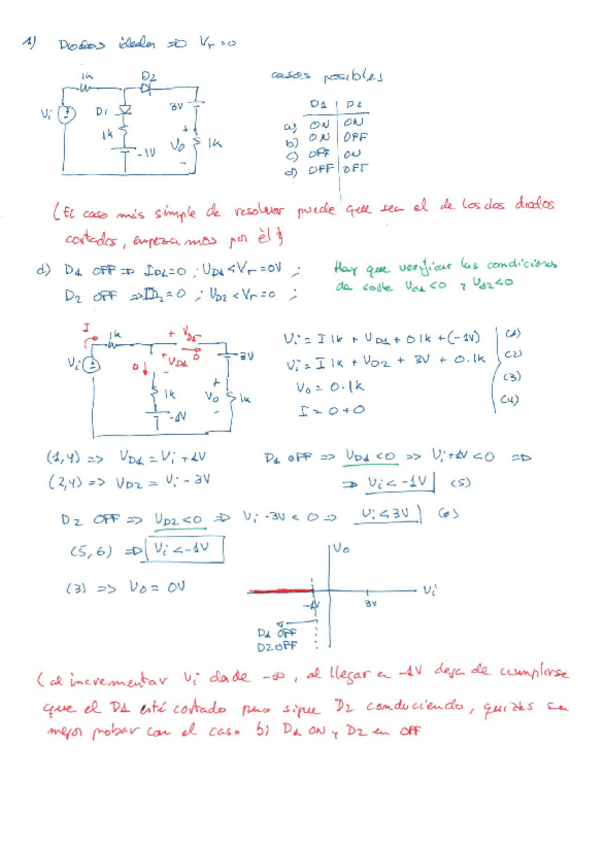 1) Diodos ideales => Vr=0
casos posibles
1k
D2
Vi
D1
3V
1k
-1V
Vo
1k
D1 D2
a) ON ON
b) ON OFF
c) OFF ON
d) OFF OFF
(El caso más simple de resolver puede que sea el de los dos diodos
cortados, empezamos por él)
d) D1 OFF => ID1=0 ; UD1<Vr=0V ;
D2 OFF => ID2=0 ; UD2<Vr=0 ;
Hay que verificar las condiciones
de corte Ud1<0 y Ud2<0
I
1k
+ VD2 -
0
Vi
0
+ VD1 -
3V
1k
Vo
1k
-1V
Vi = I 1k + UD1 + 0 1k + (-1V) (1)
Vi = I 1k + UD2 + 3V + 0.1k (2)
Vo = 0.1k (3)
I = 0+0 (4)
(1,4) => UD1 = Vi + 1V
D1 OFF => UD1<0 => Vi+1V<0 =>
(2,4) => UD2 = Vi - 3V
=> Vi<-1V (5)
D2 OFF => UD2<0 => Vi-3V<0 => Vi<3V (6)
(5,6) => Vi<-1V
(3) => Vo = 0V
Vo
Vi
-1V
3V
D1 OFF
D2 OFF
(al incrementar Vi desde -∞, al llegar a -1V deja de cumplirse
que el D1 está cortado pero sigue D2 conduciendo, quizás sea
mejor probar con el caso b) D1 ON y D2 en OFF